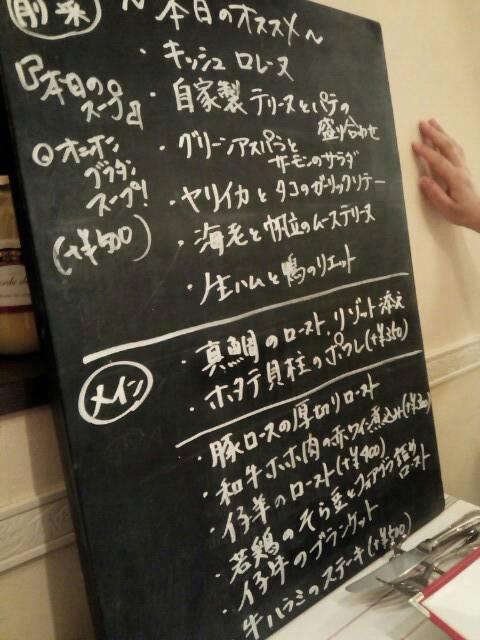 前菜
～本日のオススメ～
『本日のスープ』
◎オニオン
グラタン
スープ!
(+¥500)
・キッシュ ロレーヌ
・自家製 テリーヌとパテの
盛り合わせ
・グリーンアスパラと
サーモンのサラダ
・ヤリイカとタコのガーリックソテー
・海老と帆立のムーステリーヌ
・生ハムと鴨のリエット
メイン
・真鯛のロースト、リゾット添え
・ホタテ貝柱のポワレ(+¥350)
・豚ロースの厚切りロースト
・和牛ホホ肉の赤ワイン煮込み
・仔羊のロースト(+¥400)
・若鶏のそら豆とフォアグラ詰め
ロースト
・仔牛のブランケット
・牛ハラミのステーキ(+¥500)